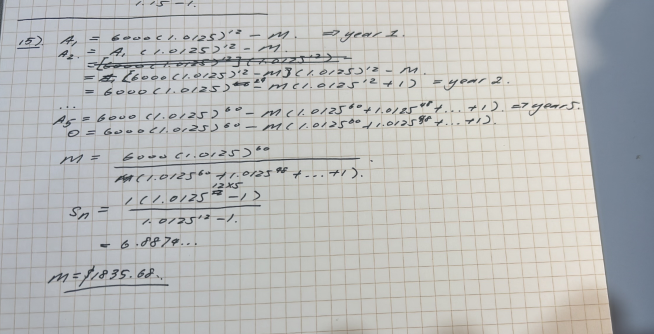 1.15 - 1.
15) A₁ = 6000(1.0125)¹² - M. ⇒ year 1.
A₂ = A₁ (1.0125)¹² - M.
= [6000(1.0125)¹²](1.0125)¹²)
= [6000(1.0125)¹² - M](1.0125)¹² - M.
= 6000(1.0125)²⁴ - M(1.0125¹² + 1) ⇒ year 2.
...
A₅ = 6000(1.0125)⁶⁰ - M(1.0125⁶⁰ + 1.0125⁴⁸ + ... + 1). ⇒ year 5.
0 = 6000(1.0125)⁶⁰ - M(1.0125⁶⁰ + 1.0125⁴⁸ + ... + 1).
M = 6000(1.0125)⁶⁰ / (1.0125⁶⁰ + 1.0125⁴⁸ + ... + 1).
Sn = 1(1.0125¹²ˣ⁵ - 1) / 1.0125¹² - 1.
= 6.8874...
M = $1835.68..